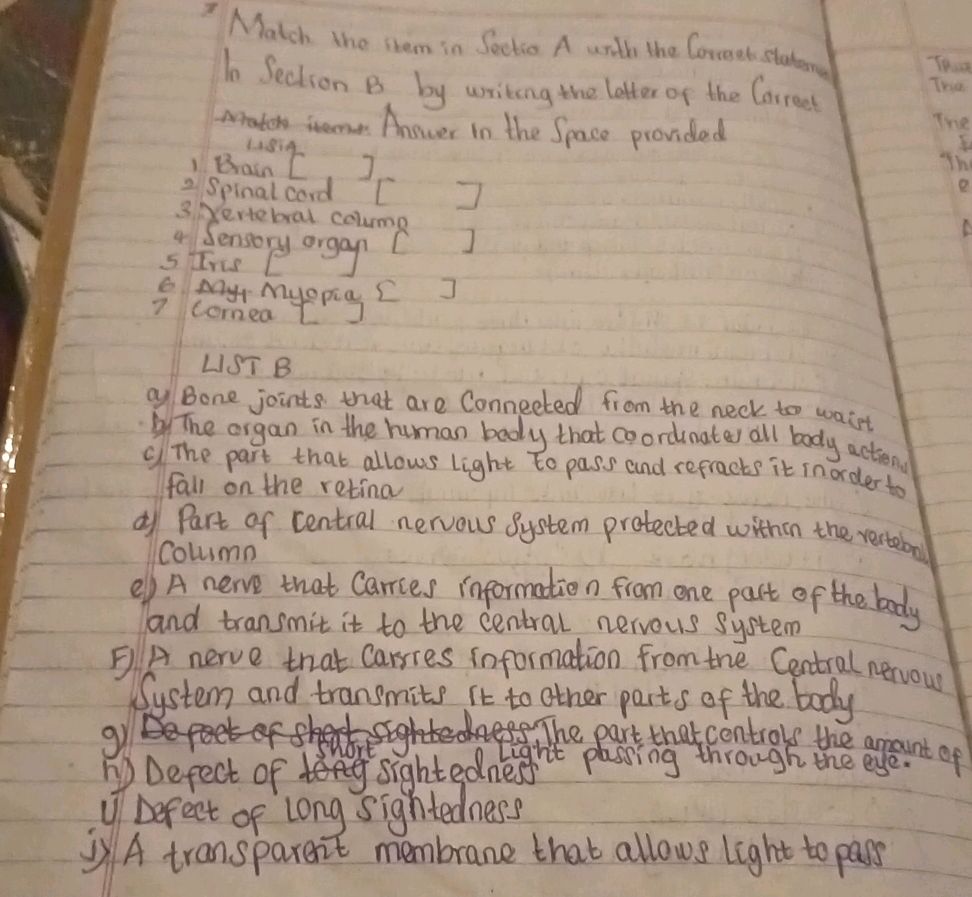 Match the item in Sectio A with the Correct statem
In Section B by writing the letter of the Correct
Match item Answer in the Space provided
List A
1 Brain [ ]
2 Spinal cord [ ]
3 Vertebral column
4 Sensory organ [ ]
5 Iris [ ]
6 Myt Myopia [ ]
7 Cornea [ ]
LIST B
a) Bone joints that are Connected from the neck to waist
b) The organ in the human body that coordinates all body actions
c) The part that allows light to pass and refracts it inorder to
fall on the retina
d) Part of central nervous system protected within the vertebral
Column
e) A nerve that Carries information from one part of the body
and transmit it to the central nervous system
F) A nerve that Carries information from the Central nervous
System and transmits it to other parts of the body
g) Defect of short sightedness The part that controls the amount of
light passing through the eye.
h) Defect of long short sightedness
i) Defect of Long sightedness
j) A transparent membrane that allows light to pass
True
True
The
Th
e